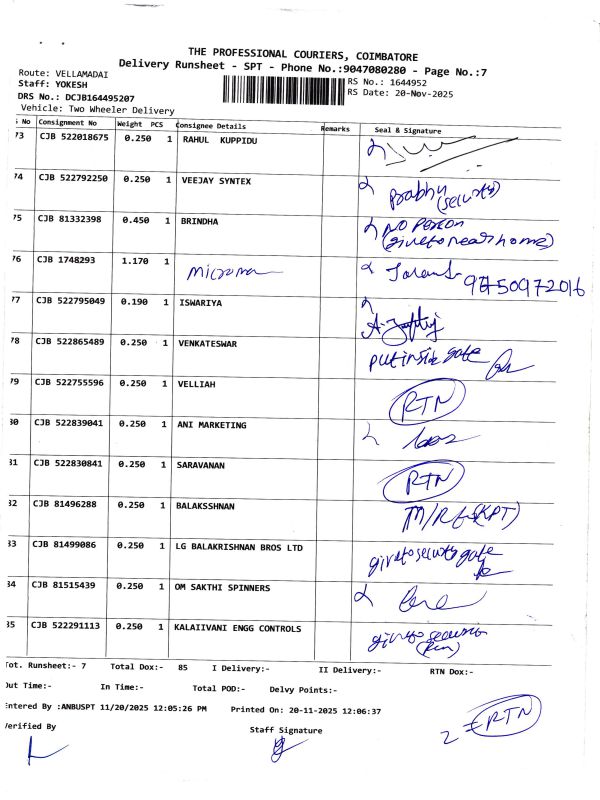 THE PROFESSIONAL COURIERS, COIMBATORE
Delivery Runsheet - SPT - Phone No.:9047080280 - Page No.:7
Route: VELLAMADAI
RS No.: 1644952
Staff: YOKESH
RS Date: 20-Nov-2025
DRS No.: DCJB164495207
Vehicle: Two Wheeler Delivery
No Consignment No Weight PCS Consignee Details Remarks Seal & Signature
73 CJB 522018675 0.250 1 RAHUL KUPPIDU
74 CJB 522792250 0.250 1 VEEJAY SYNTEX Prabhu
(security)
75 CJB 81332398 0.450 1 BRINDHA NO PERSON
(give to near home)
76 CJB 1748293 1.170 1 9750972016
77 CJB 522795049 0.190 1 ISWARIYA
78 CJB 522865489 0.250 1 VENKATESWAR put inside gate
79 CJB 522755596 0.250 1 VELLIAH RTN
80 CJB 522839041 0.250 1 ANI MARKETING
81 CJB 522830841 0.250 1 SARAVANAN RTN
82 CJB 81496288 0.250 1 BALAKSSHNAN M/R (KPT)
83 CJB 81499086 0.250 1 LG BALAKRISHNAN BROS LTD give to security gate
84 CJB 81515439 0.250 1 OM SAKTHI SPINNERS
85 CJB 522291113 0.250 1 KALAIIVANI ENGG CONTROLS give to
Tot. Runsheet:- 7 Total Dox:- 85 I Delivery:- II Delivery:- RTN Dox:-
Out Time:- In Time:- Total POD:- Delvy Points:-
Entered By :ANBUSPT 11/20/2025 12:05:26 PM Printed On: 20-11-2025 12:06:37
2 = RTN
Verified By Staff Signature